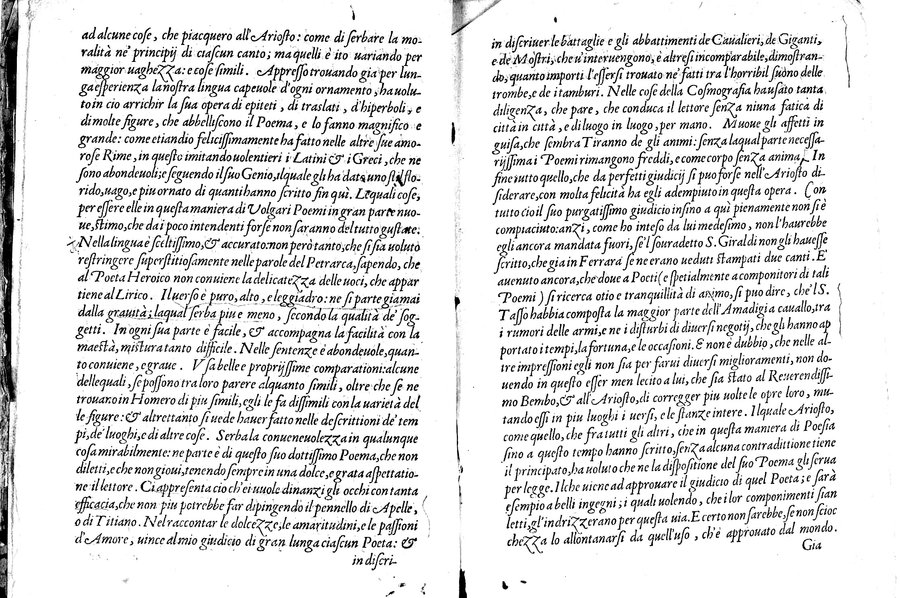 ad alcune cose, che piacquero all'Ariosto: come di serbare la mo-
ralità ne' principij di ciascun canto; ma quelli è ito uariando per
maggior uaghezza: e cose simili. Appresso trouando gia per lun-
ga esperienza la nostra lingua capeuole d'ogni ornamento, ha uolu-
to in cio arrichir la sua opera di epiteti, di traslati, d'hiperboli, e
di molte figure, che abbelliscono il Poema, e lo fanno magnifico e
grande: come etiandio felicissimamente ha fatto nelle altre sue amo-
rose Rime, in questo imitando uolentieri i Latini & i Greci, che ne
sono abondeuoli; e seguendo il suo Genio, ilquale gli ha dato uno stil flo-
rido, uago, e piu ornato di quanti hanno scritto fin quì. Lequali cose,
per essere elle in questa maniera di Volgari Poemi in gran parte nuo-
ue, stimo, che da i poco intendenti forse non saranno del tutto gustate.
Nella lingua è sceltissimo, & accurato: non però tanto, che si sia uoluto
restringere superstitiosamente nelle parole del Petrarca, sapendo, che
al Poeta Heroico non conuiene la delicatezza delle uoci, che appar
tiene al Lirico. Il uerso è puro, alto, e leggiadro: ne si parte giamai
dalla grauità; laqual serba piu e meno, secondo la qualità de' sog-
getti. In ogni sua parte è facile, & accompagna la facilità con la
maestà, mistura tanto difficile. Nelle sentenze è abondeuole, quan-
to conuiene, e graue. Vsa belle e proprijssime comparationi: alcune
dellequali, se possono tra loro parere alquanto simili, oltre che se ne
trouano in Homero di piu simili, egli le fa dissimili con la varietà del
le figure: & altrettanto si uede hauer fatto nelle descrittioni de' tem
pi, de' luoghi, e di altre cose. Serba la conueneuolezza in qualunque
cosa mirabilmente: ne parte è di questo suo dottissimo Poema, che non
diletti, e che non gioui, tenendo sempre in una dolce, e grata aspettatio-
ne il lettore. Ci appresenta cio ch'ei uuole dinanzi gli occhi con tanta
efficacia, che non piu potrebbe far dipingendo il pennello di Apelle,
o di Titiano. Nel raccontar le dolcezze, le amaritudini, e le passioni
d'Amore, uince al mio giudicio di gran lunga ciascun Poeta: &
in discri-
in discriuer le battaglie e gli abbattimenti de Caualieri, de Giganti,
e de Mostri, che u'interuengono, è altresi incomparabile, dimostran-
do, quanto importi l'essersi trouato ne' fatti tra l'horribil suòno delle
trombe, e de i tamburi. Nelle cose della Cosmografia ha usato tanta
diligenza, che pare, che conduca il lettore senza niuna fatica di
città in città, e di luogo in luogo, per mano. Muoue gli affetti in
guisa, che sembra Tiranno de gli animi: senza laqual parte necessa-
rijssima i Poemi rimangono freddi, e come corpo senza anima. In
fine tutto quello, che da perfetti giudicij si puo forse nell'Ariosto di-
siderare, con molta felicità ha egli adempiuto in questa opera. Con
tutto cio il suo purgatissimo giudicio insino a qui pienamente non si è
compiaciuto: anzi, come ho inteso da lui medesimo, non l'haurebbe
egli ancora mandata fuori, se'l souradetto S. Giraldi non gli hauesse
scritto, che gia in Ferrara se ne erano ueduti stampati due canti. E
auenuto ancora, che doue a Poeti (e spetialmente a componitori di tali
Poemi) si ricerca otio e tranquillità di animo, si puo dire, che'l S.
Tasso habbia composta la maggior parte dell'Amadigi a cauallo, tra
i rumori delle armi, e ne i disturbi di diuersi negotij, che gli hanno ap
portato i tempi, la fortuna, e le occasioni. E non è dubbio, che nelle al-
tre impressioni egli non sia per farui diuersi miglioramenti, non do-
uendo in questo esser men lecito a lui, che sia stato al Reuerendissi-
mo Bembo, & all'Ariosto, di corregger piu uolte le opre loro, mu-
tando essi in piu luoghi i uersi, e le stanze intere. Ilquale Ariosto,
come quello, che fra tutti gli altri, che in questa maniera di Poesia
sino a questo tempo hanno scritto, senza alcuna contradittione tiene
il principato, ha uoluto che ne la dispositione del suo Poema gli serua
per legge. Il che uiene ad approuare il giudicio di quel Poeta; e sarà
esempio a belli ingegni; i quali uolendo, che i lor componimenti sian
letti, gl'indrizzerano per questa uia. E certo non sarebbe, se non scioc
chezza lo allontanarsi da quell'uso, ch'è approuato dal mondo.
Gia